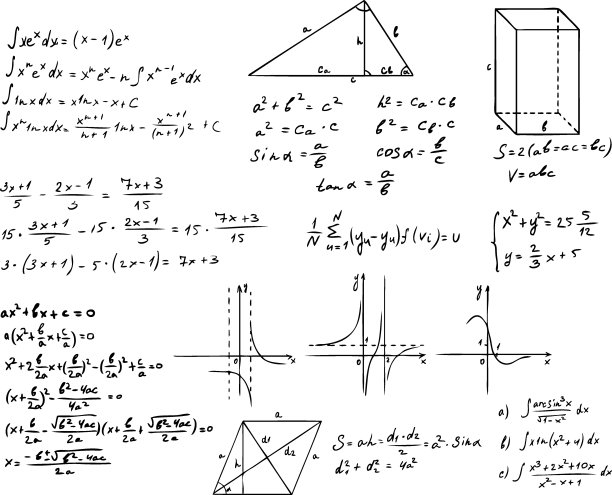 ∫xe^x dx = (x-1)e^x
∫x^n e^x dx = x^n e^x - n∫x^(n-1) e^x dx
∫lnxdx = xlnx - x + C
∫x^n lnxdx = x^(n+1)/(n+1) lnx - x^(n+1)/(n+1)^2 + C
a b h ca c cb a
a^2 + b^2 = c^2 h^2 = ca · cb
a^2 = ca · c b^2 = cb · c
sin α = a/b cos α = b/c
tan α = a/b
c a b
S=2(ab=ac=bc)
V=abc
(3x+1)/5 - (2x-1)/3 = (7x+3)/15
15 · (3x+1)/5 - 15 · (2x-1)/3 = 15 · (7x+3)/15
3 · (3x+1) - 5 · (2x-1) = 7x+3
1/N ∑_(n=1)^N (yu-yu)f(vi)=u
{ x^2 + y^2 = 25 5/12
y = 2/3 x + 5
ax^2 + bx + c = 0
a(x^2 + b/a x + c/a) = 0
x^2 + 2 b/2a x + (b/2a)^2 - (b/2a)^2 + c/a = 0
(x + b/2a)^2 - (b^2-4ac)/4a^2 = 0
(x + b/2a - √(b^2-4ac)/2a)(x + b/2a + √(b^2-4ac)/2a) = 0
x = (-b±√(b^2-4ac))/2a
y 0 x
y 1 0 x
y 1 0 1 x
a a a h d1 d2 α
S = ah = (d1·d2)/2 = a^2 · sin α
d1^2 + d2^2 = 4a^2
a) ∫ arcsin^3 x/√(1-x^2) dx
b) ∫xln(x^2+4)dx
c) ∫ (x^3+2x^2+10x)/(x^2-x+1) dx